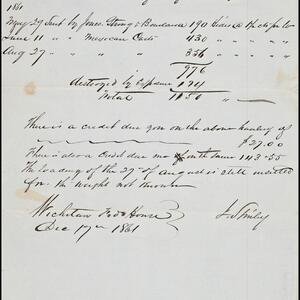 1861
May 29 Sent by Jones Strong & Boudance 190 Sides @ 1/2 cts pr lb
June 11 " " Mexican Carts 430 " "
Aug 27 " " " 356 " "
976
destroyed by exposure 174
Total 1150 " "
There is a credit due you on the above hauling of
$27.00
There is also a credit due me for the same 143-55
The loading of the 27th of August is still unsettled
for the weight not known
Wichitaw Trade House
Dec 17th 1861
J. Shirley